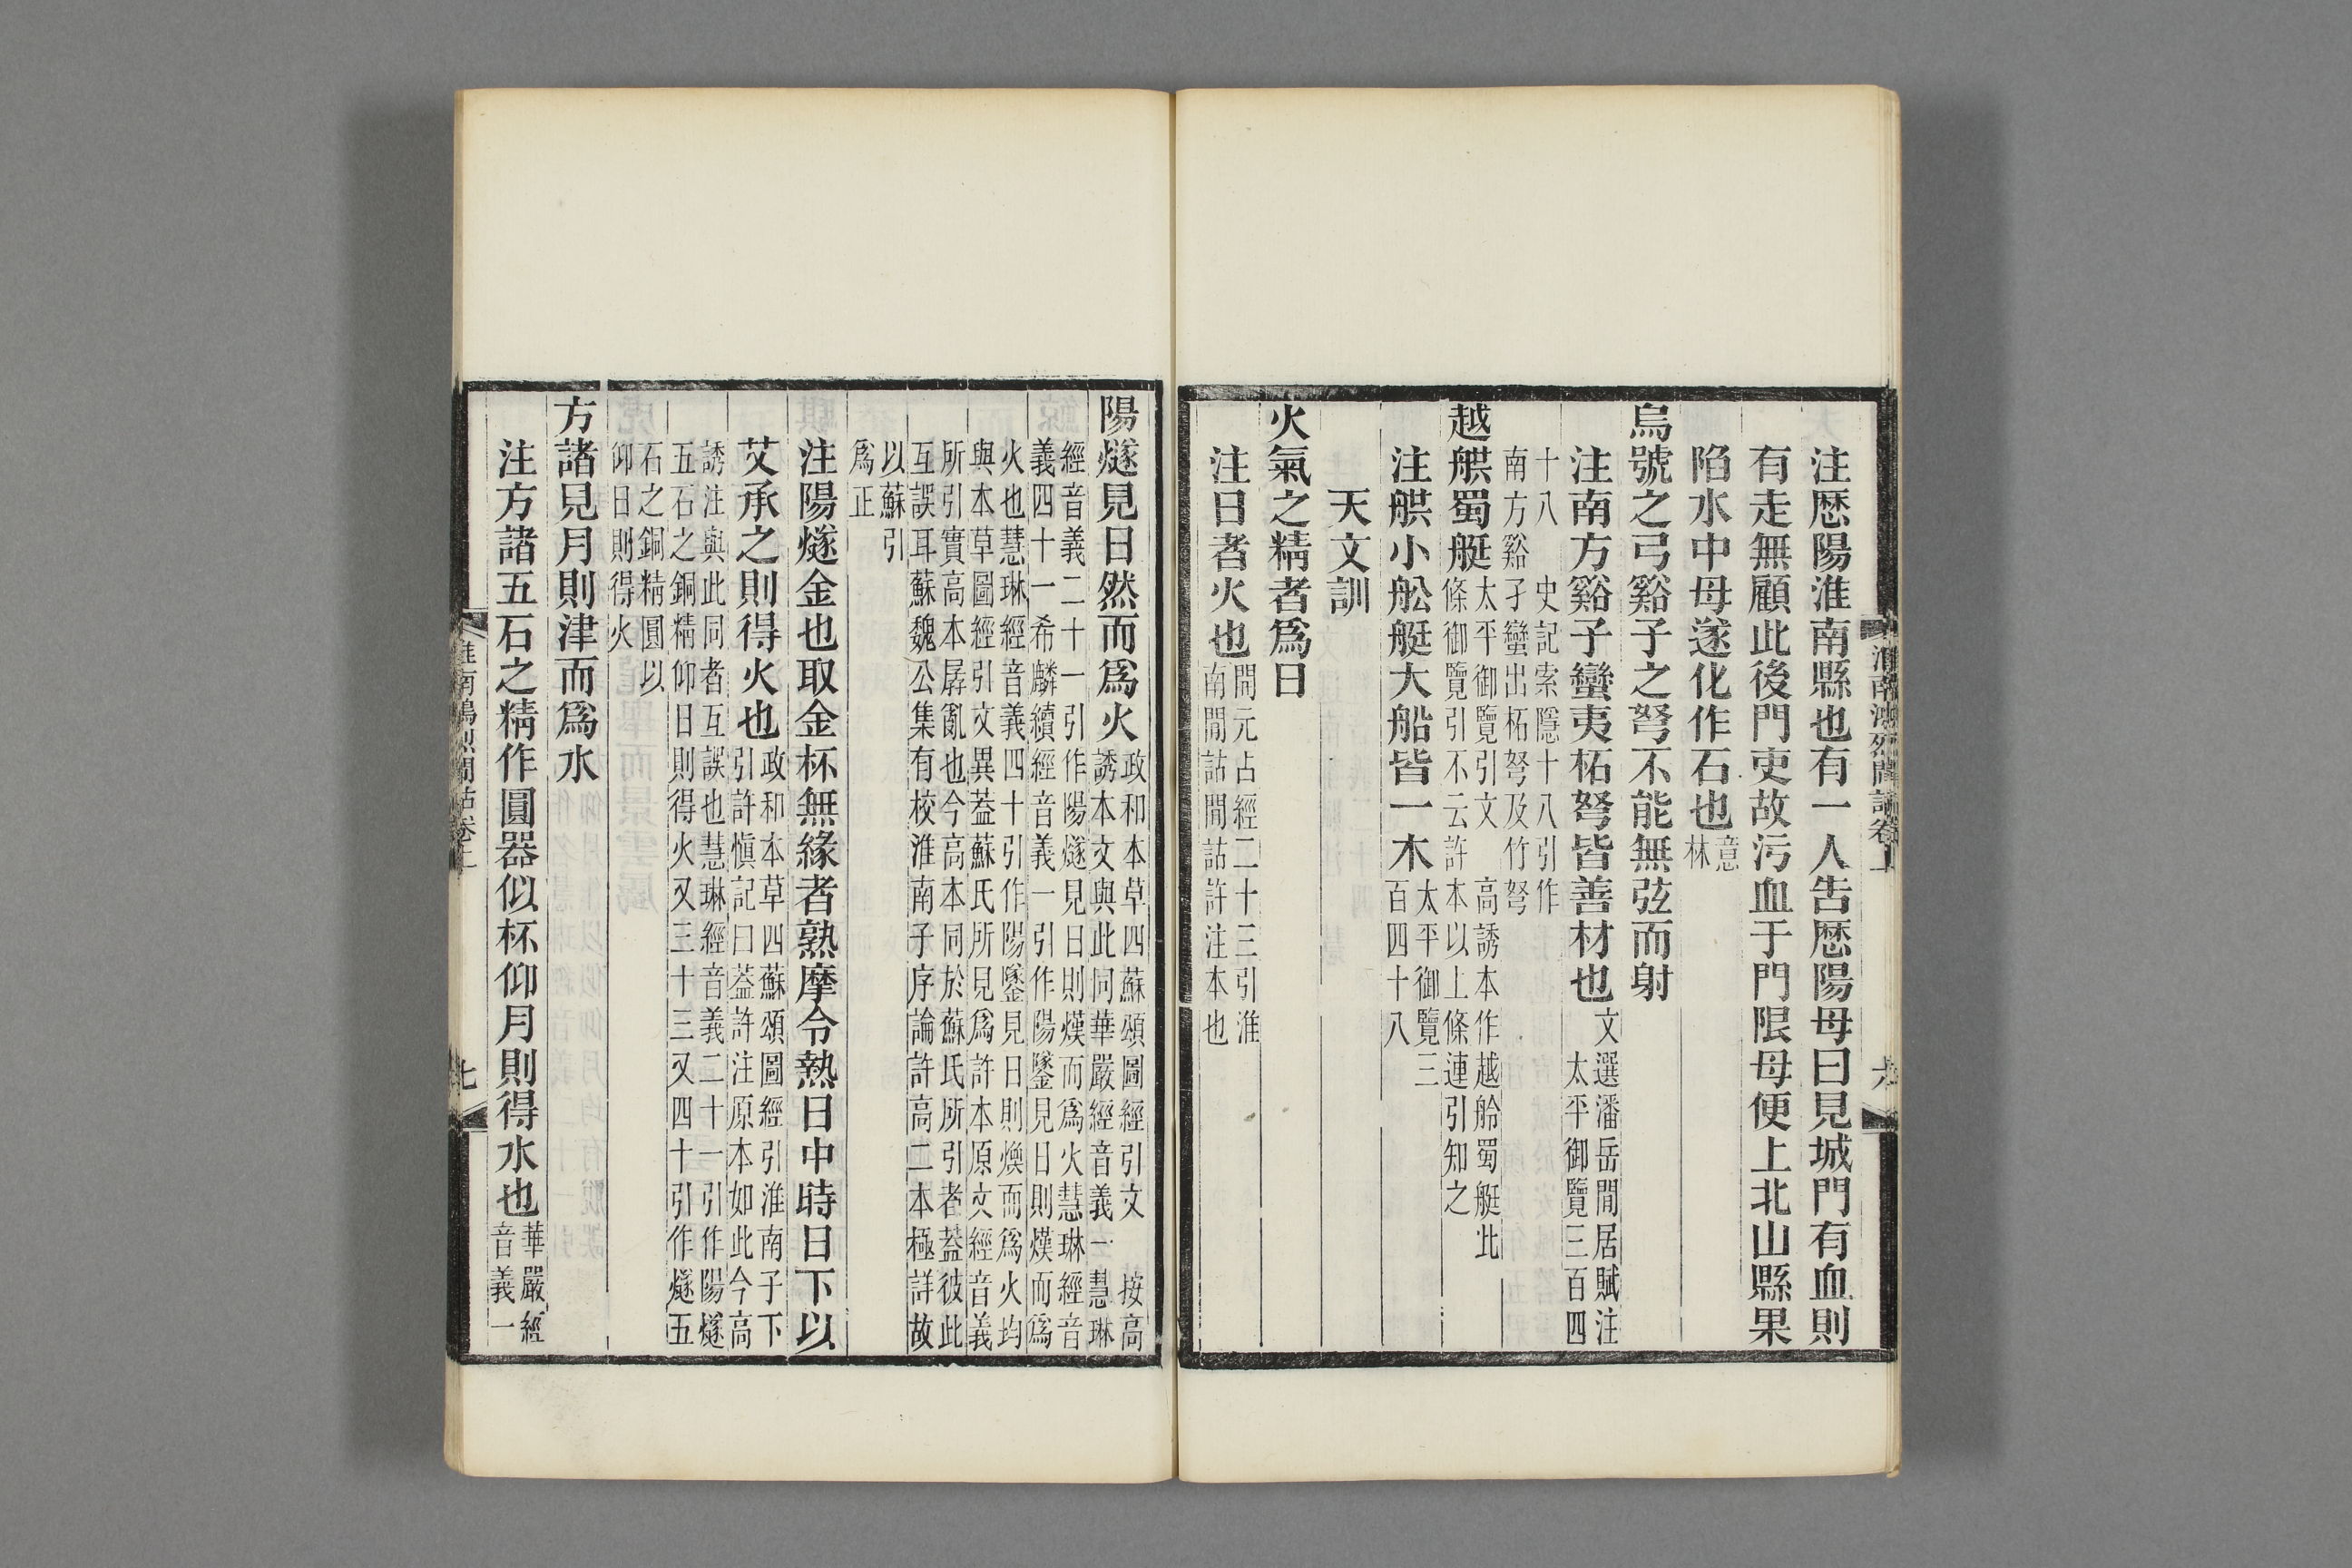 注厯陽淮南縣也有一人告厯陽母曰見城門有血則
有走無顧此後門吏故污血于門限母便上北山縣果
陷水中母遂化作石也
意
林
烏號之弓谿子之弩不能無弦而射
注南方谿子蠻夷柘弩皆善材也
文選潘岳閒居賦注
太平御覽三百四
十八 史記索隱十八引作
南方谿子蠻出柘弩及竹弩
越艓蜀艇
太平御覽引文 高誘本作越舲蜀艇此
條御覽引不云許本以上條連引知之
注艓小舩艇大船皆一木
太平御覽三
百四十八
天文訓
火氣之精者爲日
注日者火也
開元占經二十三引淮
南閒詁閒詁許注本也
淮南鴻烈閒詁卷上
六
陽燧見日然而爲火
政和本草四蘇頌圖經引文 按高
誘本文與此同華嚴經音義一慧琳
經音義二十一引作陽燧見日則熯而爲火慧琳經音
義四十一希麟續經音義一引作陽鐆見日則熯而爲
火也慧琳經音義四十引作陽鐆見日則煥而爲火均
與本草圖經引文異蓋蘇氏所見爲許本原文經音義
所引實高本孱亂也今高本同於蘇氏所引者蓋彼此
互誤耳蘇魏公集有校淮南子序論許高二本極詳故
以蘇引
爲正
注陽燧金也取金杯無緣者熟摩令熱日中時日下以
艾承之則得火也
政和本草四蘇頌圖經引淮南子下
引許愼記曰蓋許注原本如此今高
誘注與此同者互誤也慧琳經音義二十一引作陽燧
五石之銅精仰日則得火又三十三又四十引作燧五
石之銅精圓以
仰日則得火
方諸見月則津而爲水
注方諸五石之精作圓器似杯仰月則得水也
華嚴經
音義一
淮南鴻烈閒詁卷上
七